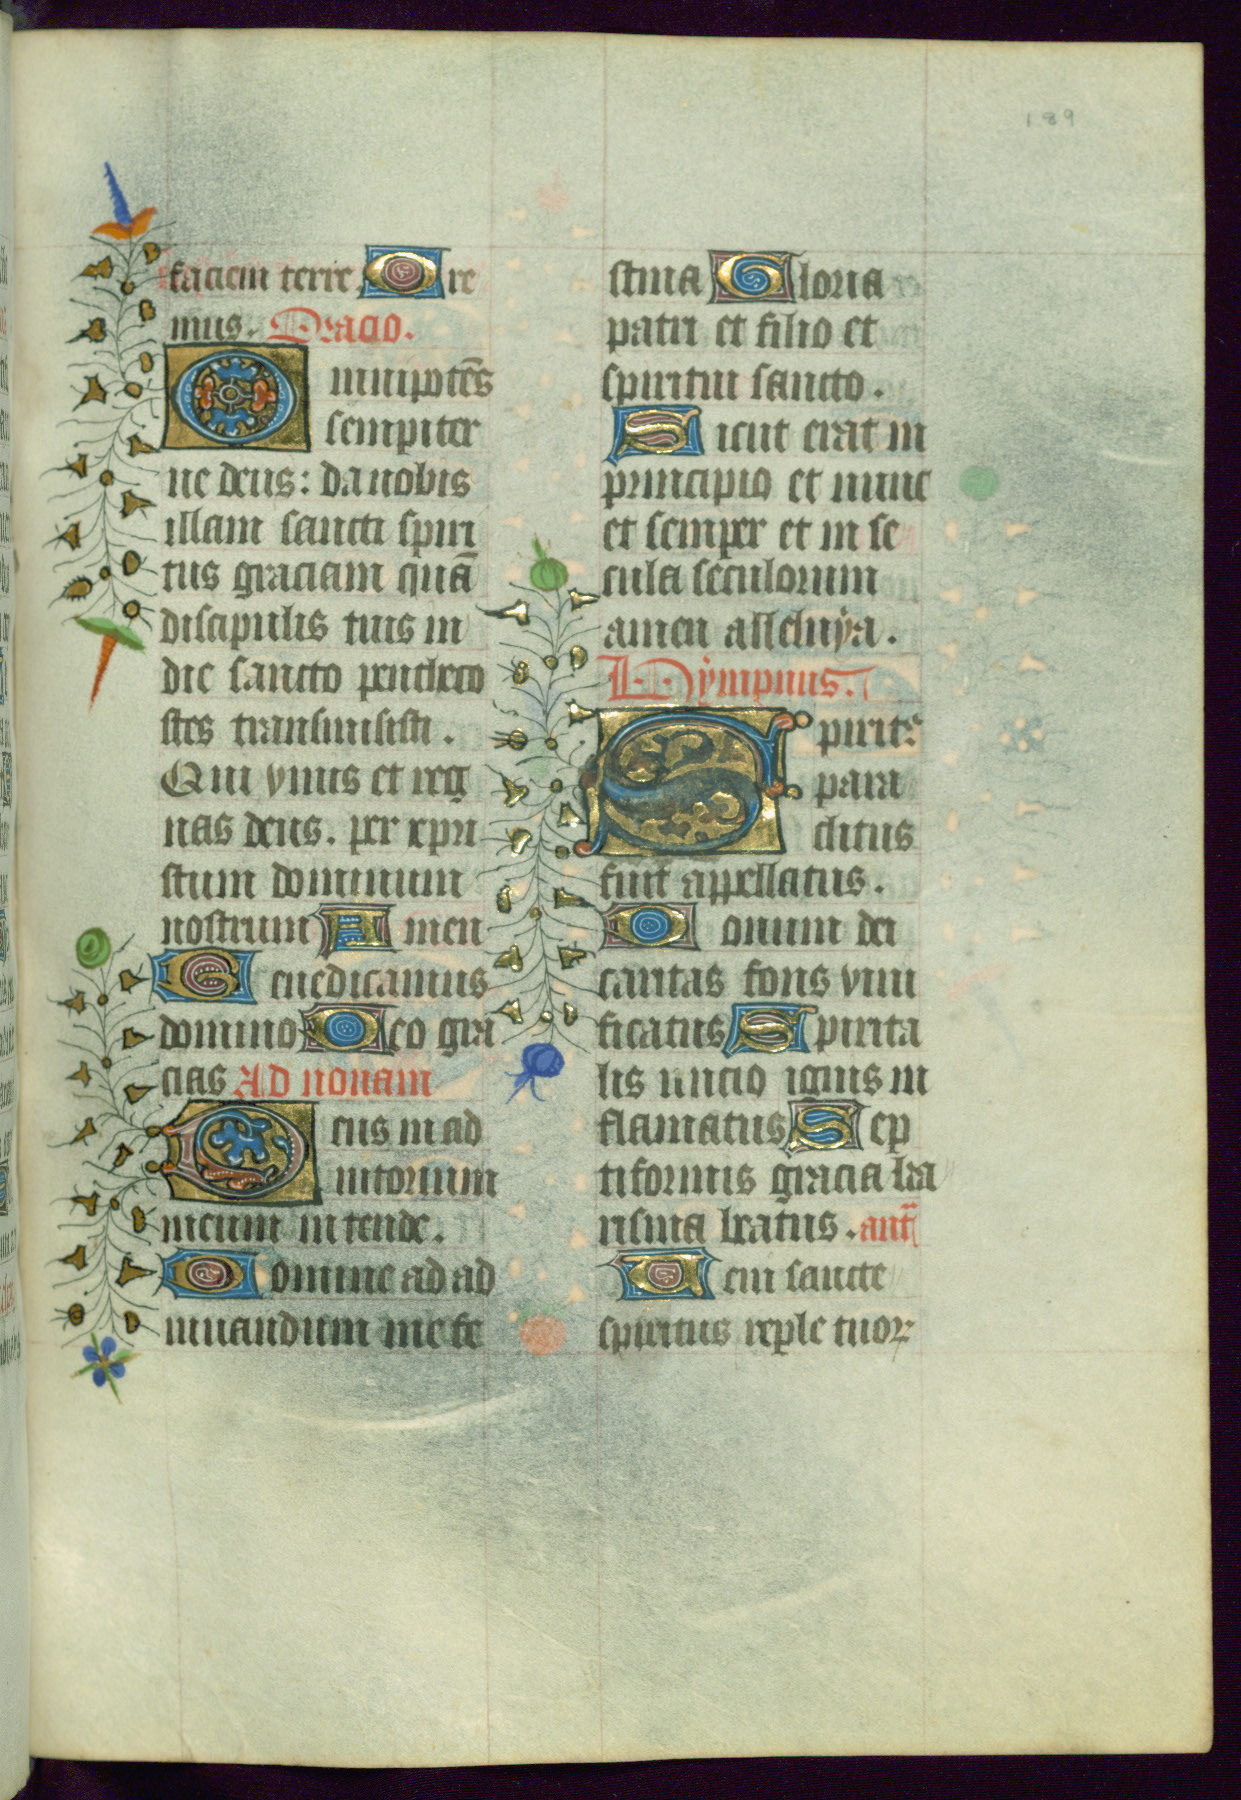 189
faciem terre. Ore
mus. Oracio.
Omnipotēs
sempiter
ne deus: da nobis
illam sancti spiri
tus graciam quā
discipulis tuis in
die sancto pentheco
stes transmisisti.
Qui vivis et reg
nas deus. per xpri
stum dominum
nostrum Amen
Benedicamus
domino Deo gra
cias Ad nonam
Deus in ad
iutorium
meum intende.
Domine ad ad
iuvandum me fe
stina Gloria
patri et filio et
spiritui sancto.
Sicut erat in
principio et nunc
et semper et in se
cula seculorum
amen alleluya.
Hympnus.
Spirit⁹
para
clitus
fuit appellatus.
Donum dei
caritas fons vivi
ficatus Spirita
lis unctio ignis in
flamatus Sep
tiformis gracia ka
risma beatus. ant̄
Veni sancte
spiritus reple tuoꝝ